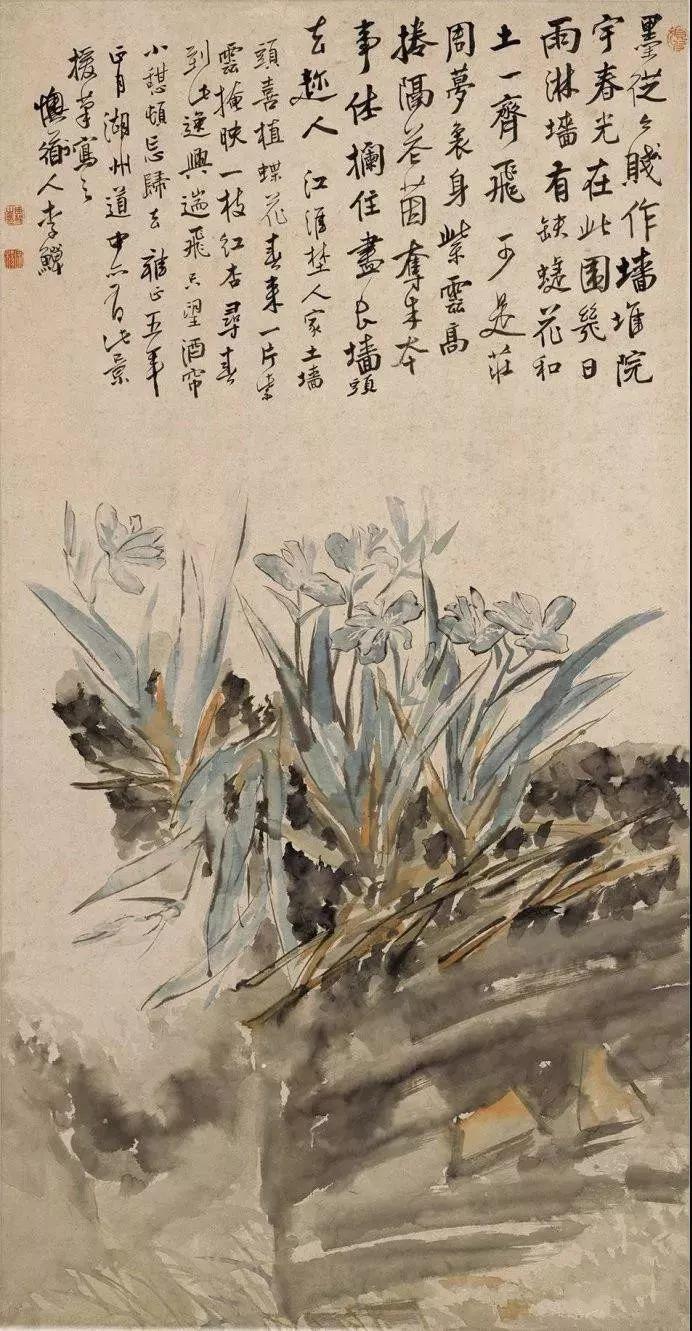 墨從今賤作墙堆院
宇春光在此圍幾日
雨淋墙有缺蜨花和
土一齊飛 可是莊
周夢裏身紫雲高
捲隔花茵奪朱本
事任攔住盡上墙頭
去趂人 江淮埜人家土墙
頭喜植蝶花春來一片紫
雲掩映一枝紅杏尋春
到此逸興遄飛只望酒帘
小憇頓忘歸去雍正五年
正月湖州道中亦有此景
援筆寫之
懊道人李鱓